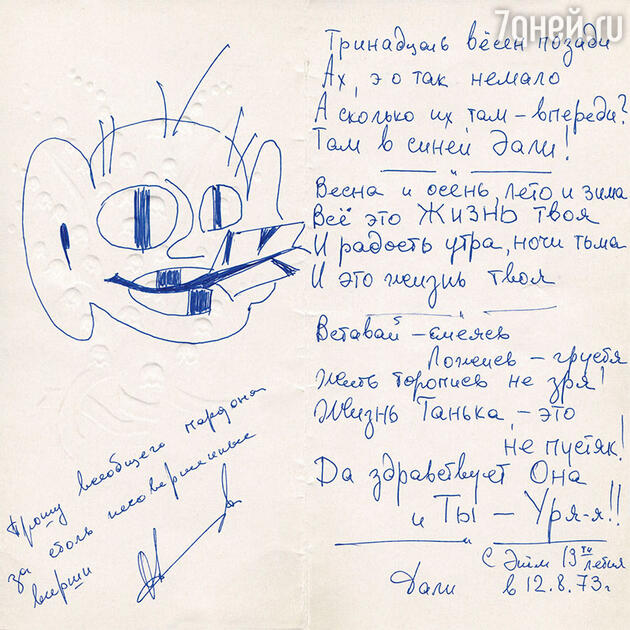 7дней.ru
Тринадцать вёсен позади
Ах, это так немало
А сколько их там – впереди?
Там в синей дали!
Весна и осень, лето и зима
Всё это ЖИЗНЬ твоя
И радость утра, ночи тьма
И это жизнь твоя
Вставай – смеясь
Ложись – грустя
Жить торопись не зря!
Жизнь Танька, – это
не пустяк!
Да здравствует Она
и Ты – Уря-я!!
С Днём 13ти летия
Дали в 12.8.73г
Прошу всеобщего пардона
за столь несовершенные
вирши